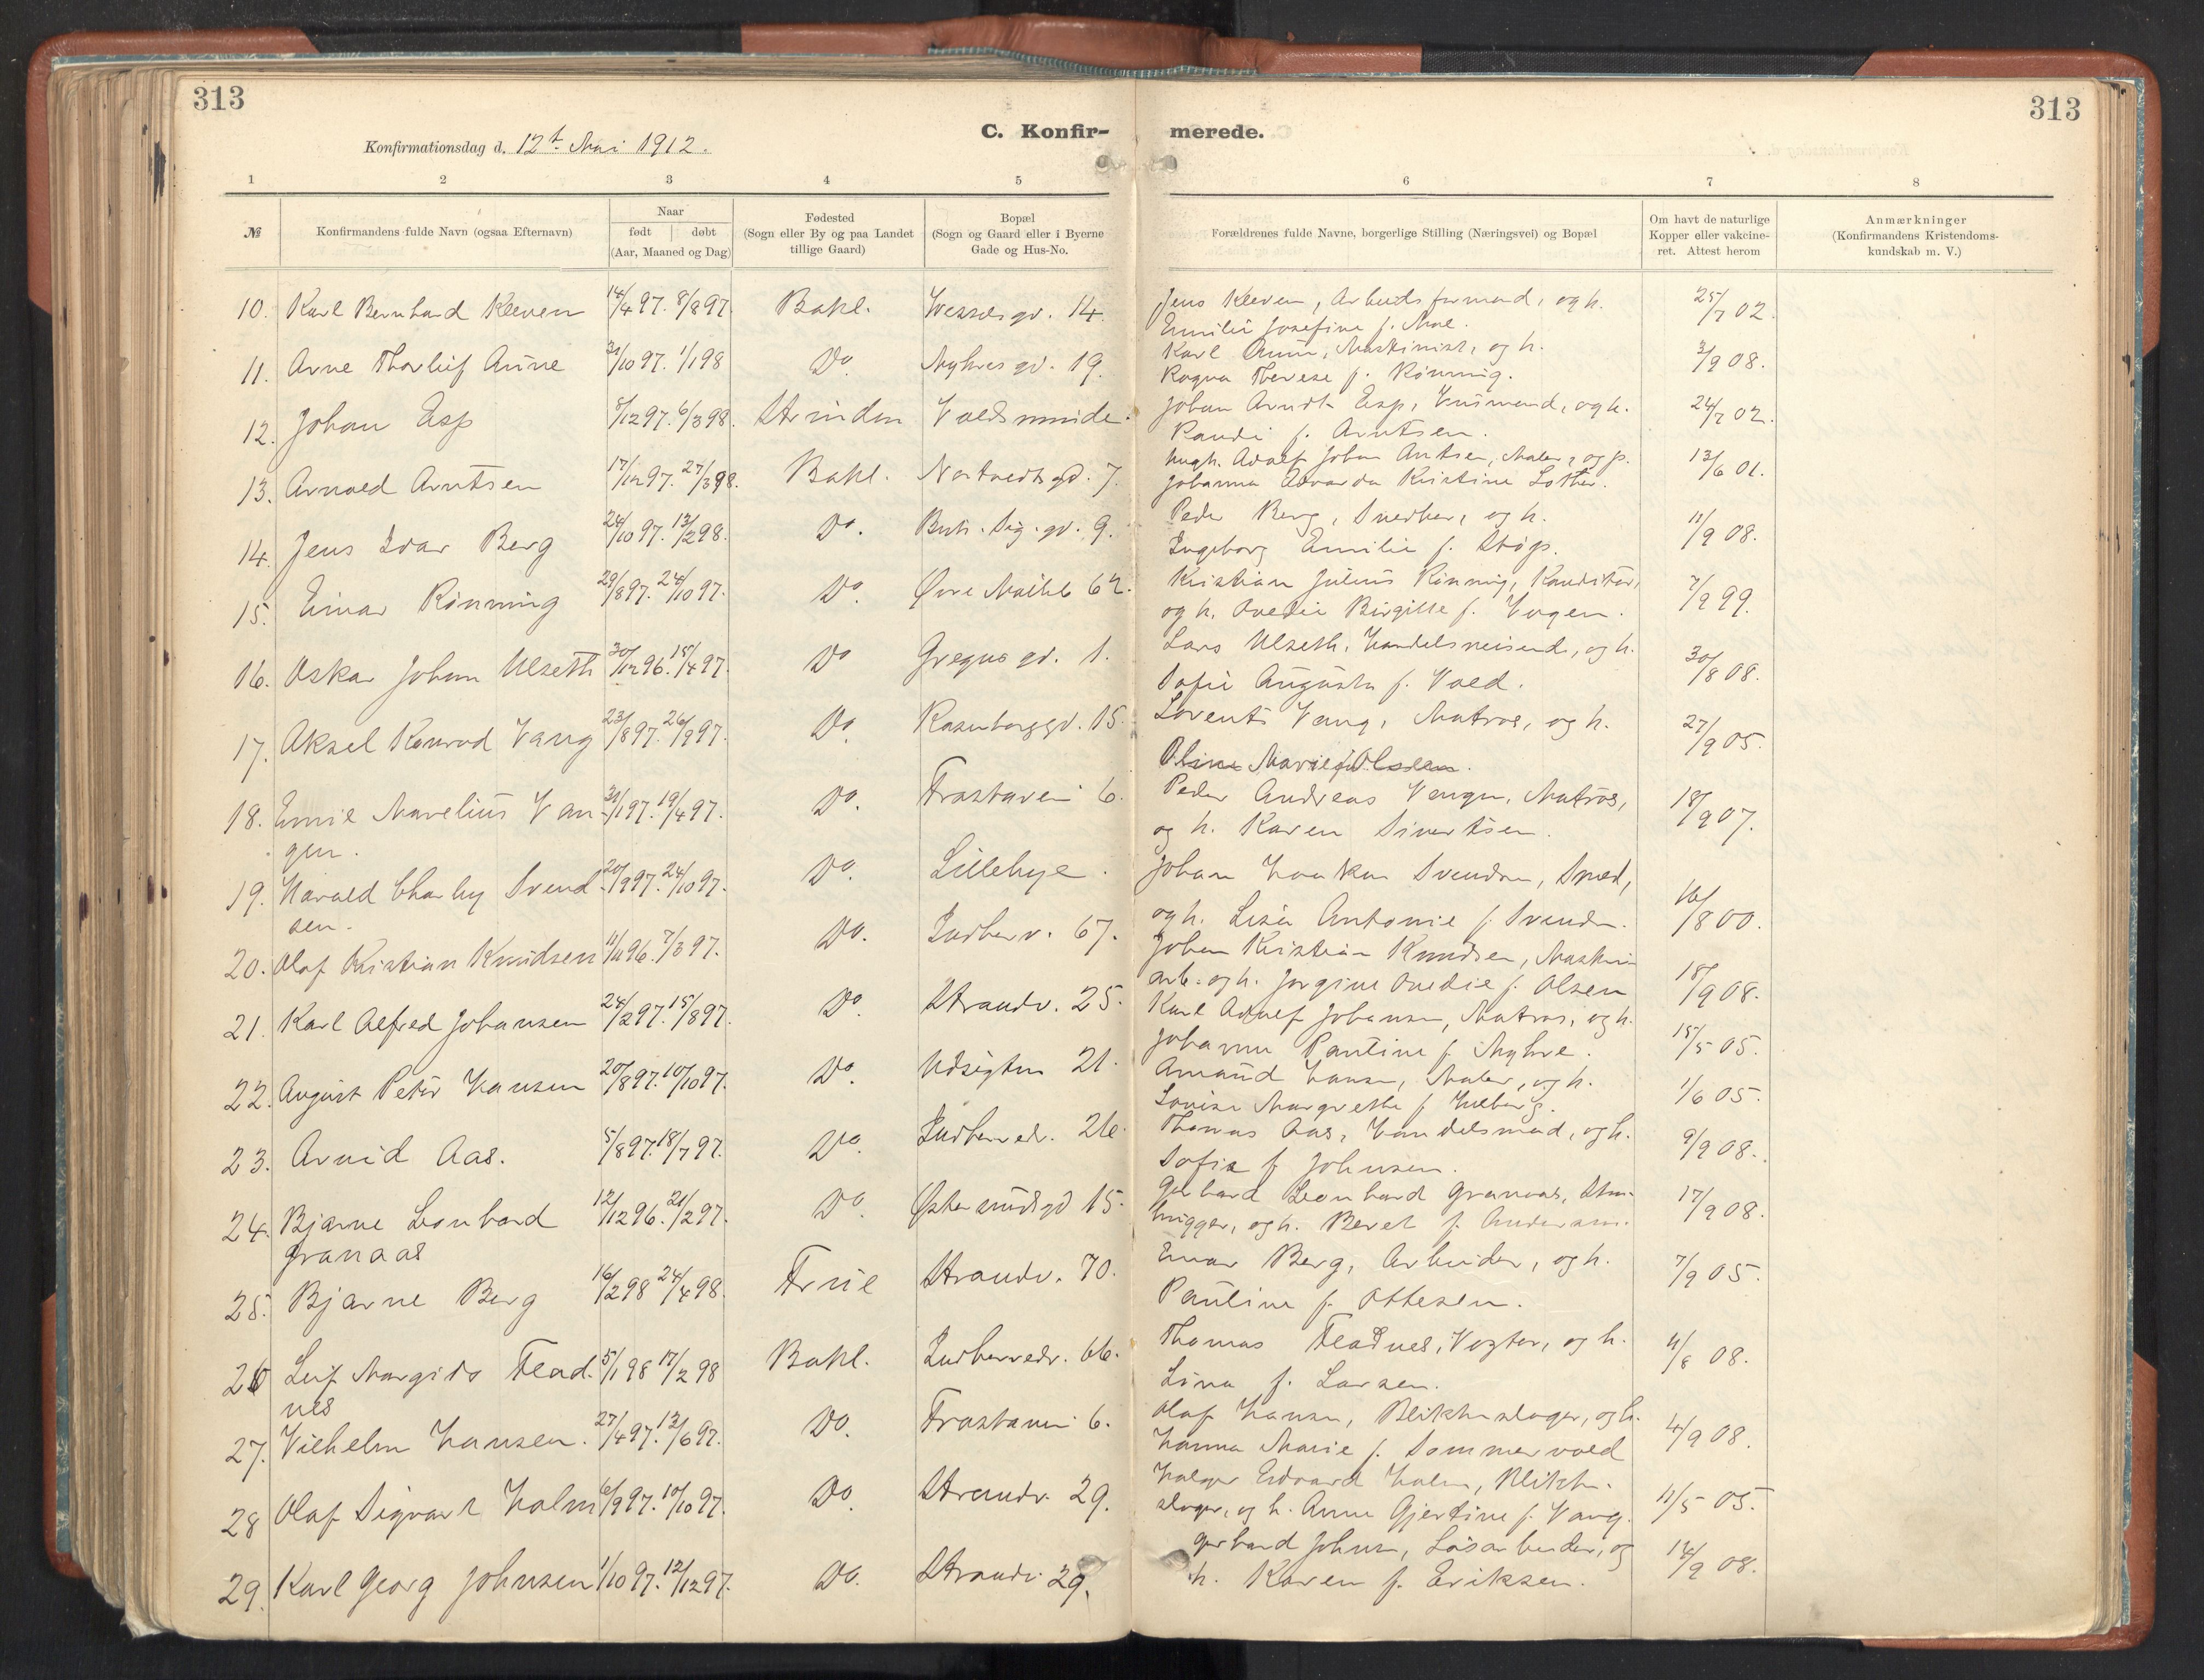 313
313
C. Konfir-
merede.
Konfirmationsdag d. 12t. Mai 1912.
1 2 3 4 5 6 7 8
№
Konfirmandens fulde Navn (ogsaa Efternavn)
Naar
født døbt
(Aar, Maaned og Dag)
Fødested
(Sogn eller By og paa Landet
tillige Gaard)
Bopæl
(Sogn og Gaard eller i Byerne
Gade og Hus-No.
Forældrenes fulde Navne, borgerlige Stilling (Næringsvei) og Bopæl
Om havt de naturlige
Kopper eller vakcine-
ret. Attest herom
Anmærkninger
(Konfirmandens Kristendoms-
kundskab m. V.)
10. Karl Bernhard Kleven 14/4 97. 8/8 97. Bakl. Wesselsgd. 14. Jens Kleven, Arbeidsformand, og h. 25/7 02.
Emilie Josefine f. Moe.
11. Arne Thorleif Aune 31/10 97. 1/1 98 Do. Myhresgd. 19. Karl Aune, Maskinist, og h. 3/9 08.
Ragna Therese f. Rønning.
12. Johan Esp 8/12 97. 6/3 98. Strinden Voldsminde. Johan Arndt Esp, Vismand, og h. 24/7 02.
Randi f. Arntsen.
13. Arnold Arntsen 17/12 97. 27/3 98. Bakl. Nortvedtsgd. 7. Adolf Johan Arntsen, Maler, og p. 13/6 01.
Johanna Edvarda Kristine Lother.
14. Jens Ivar Berg 24/10 97. 13/2 98. Do. Buh. Sig. gd. 9. Peder Berg, Snedker, og h. 11/9 08.
Ingeborg Emilie f. Støp.
15. Einar Rønning 29/8 97. 24/10 97. Do. Øvre Møllebg 62. Kristian Julius Rønning, Konditor, 7/9 99.
og h. Ovedie Birgitte f. Vogen.
16. Oskar Johan Ulseth 30/12 96. 18/4 97. Do Gregus gd. 1. Lars Ulseth, Handelsreisende, og h. 30/8 08.
Sofie Augusta f. Vold.
17. Aksel Konrad Vang 23/8 97. 26/9 97. Do. Rosenborggd. 15. Lorents Vang, Matros, og h. 27/9 05.
Oline Marie f. Olsen.
18. Emil Marelius Van- 31/1 97. 19/4 97. Do. Frostaven 6. Peder Andreas Vangen, Matros, 18/9 07.
gen. og h. Karen Sivertsen.
19. Harald Charley Svend- 20/9 97. 24/10 97. Do. Lillebye. Johan Haakon Svendsen, Smed, 16/8 00.
sen. og h. Lisa Antonie f. Svendsen.
20. Olaf Kristian Knudsen 11/11 96. 7/3 97. Do. Indherv. 67. Johan Kristian Knudsen, Maskin- 18/9 08.
arb. og h. Jorgine Ovedie f. Olsen
21. Karl Alfred Johansen 24/2 97. 15/8 97. Do. Strandv. 25. Karl Adolf Johansen, Matros, og h. 15/5 05.
Johanna Pauline f. Myhre.
22. August Peter Hansen 20/8 97. 10/10 97. Do. Udsigten 21. Amand Hansen, Maler, og h. 1/6 05.
Lovise Margrethe f. Hilberg.
23. Arvid Aas. 5/8 97. 18/7 97. Do. Indherredv. 26. Thomas Aas, Handelsmand, og h. 9/9 08.
Sofie f. Johnsen.
24. Bjarne Leonhard 12/12 96. 21/2 97. Do. Østersundsgd 15. Gerhard Leonhard Granaas, Sten- 17/9 08.
Granaas hugger, og h. Beret f. Andersen.
25. Bjarne Berg 16/2 98 24/4 98. Frue Strandv. 70. Einar Berg, Arbeider, og h. 7/9 05.
Pauline f. Ottesen.
26 Leif Margido Flad- 5/1 98 17/2 98 Bakl. Indherredv. 66. Thomas Fladnes, Vogter, og h. 4/8 08.
nes Lina f. Larsen.
27. Vilhelm Hansen. 27/4 97. 13/6 97. Do. Frostaven 6. Olaf Hansen, Blikkenslager, og h. 4/9 08.
Hanna Marie f. Sommervold
28 Olaf Sigvart Holm 6/9 97. 10/10 97. Do. Strandv. 29. Holger Edvard Holm, Blikken- 11/5 05.
slager, og h. Anne Gjertine f. Vang.
29. Karl Georg Johnsen 1/10 97. 12/12 97. Do. Strandv. 29. Gerhard Johnsen, Løsarbeider, og 14/9 08.
h. Karen f. Eriksen.